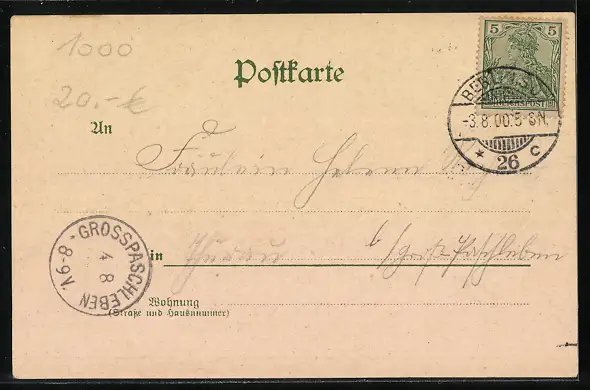 1000
20.-€
Postkarte
5 5
REICHSPOST
BERLIN S.W.
-3.8.00.5-6N.
* 26 c
An
Fräulein Helene
in b/ Groß-Paschleben
GROSSPASCHLEBEN
4 8
V 8-9
Wohnung
(Straße und Hausnummer)